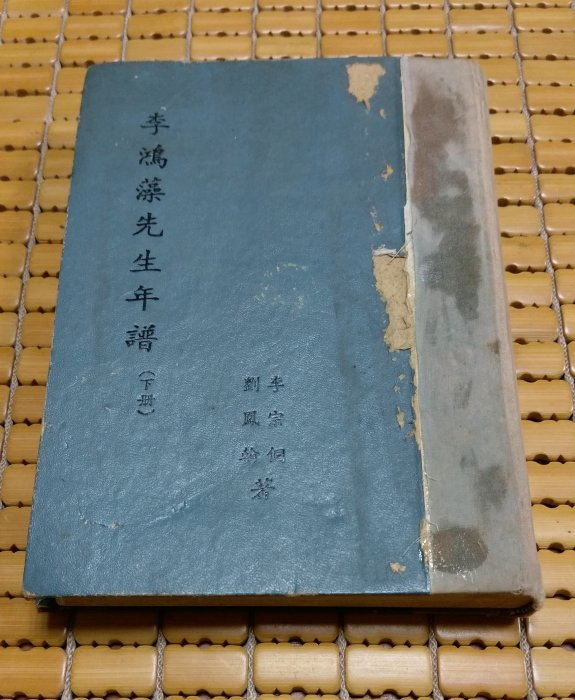 李鴻藻先生年譜(下册)
李宗侗
劉鳳翰
著